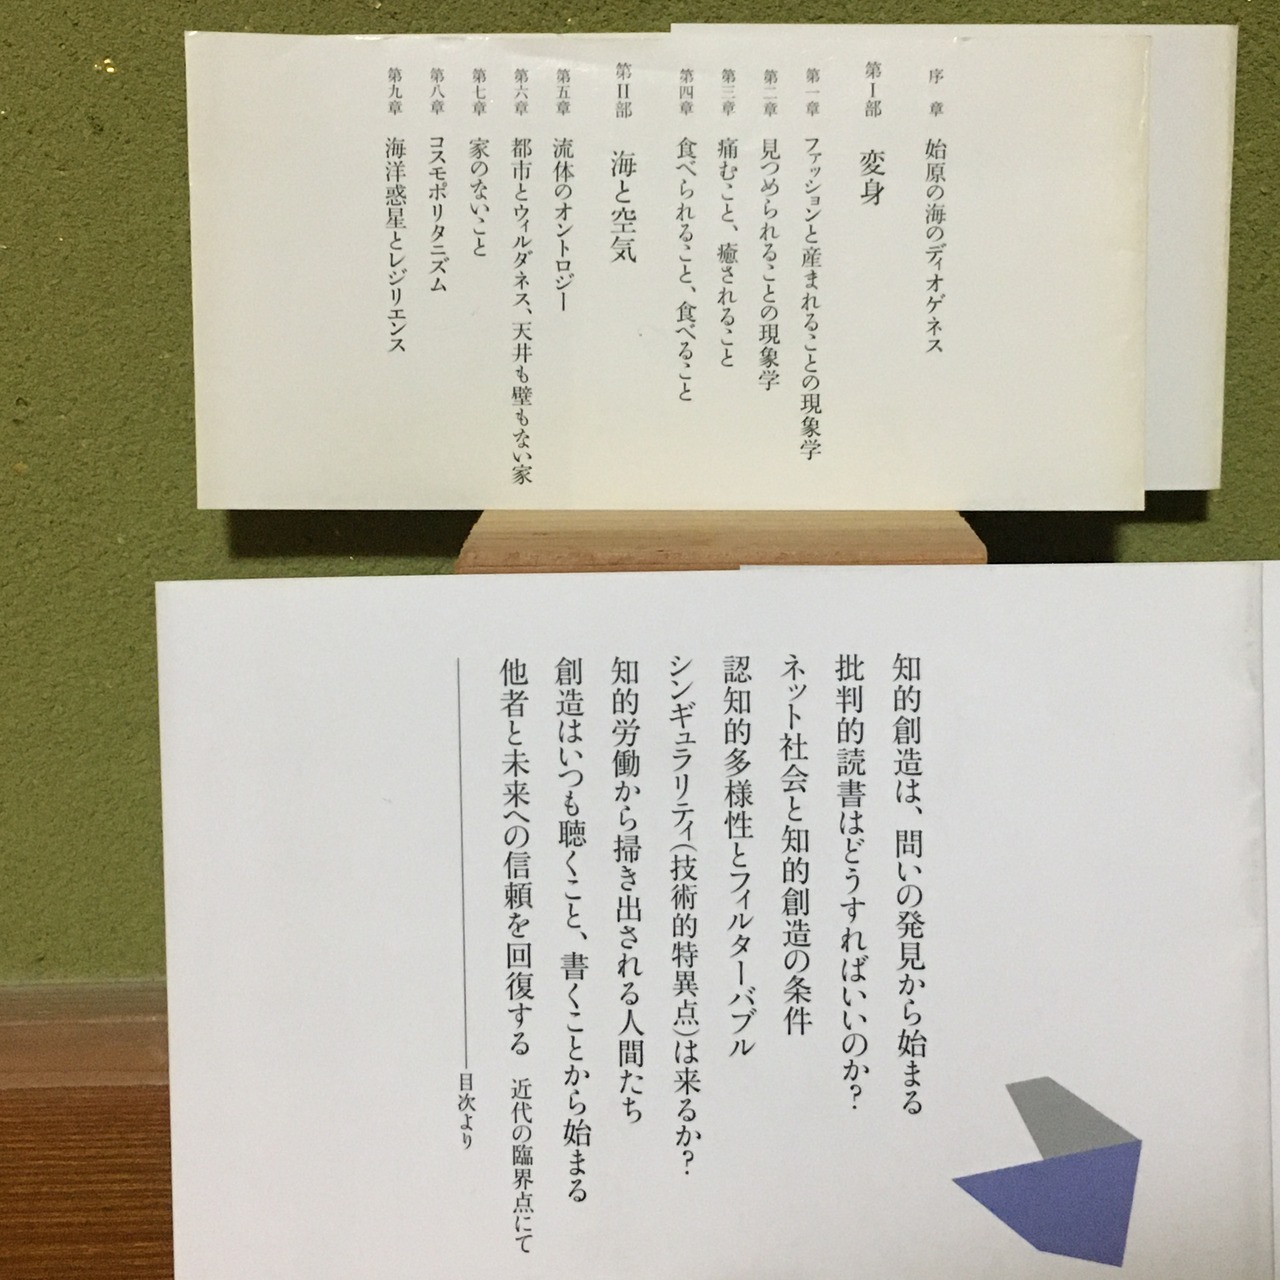 序章 始原の海のディオゲネス
第I部 変身
第一章 ファッションと産まれることの現象学
第二章 見つめられることの現象学
第三章 痛むこと、癒されること
第四章 食べられること、食べること
第II部 海と空気
第五章 流体のオントロジー
第六章 都市とウィルダネス、天井も壁もない家
第七章 家のないこと
第八章 コスモポリタニズム
第九章 海洋惑星とレジリエンス
知的創造は、問いの発見から始まる
批判的読書はどうすればいいのか？
ネット社会と知的創造の条件
認知的多様性とフィルターバブル
シンギュラリティ（技術的特異点）は来るか？
知的労働から掃き出される人間たち
創造はいつも聴くこと、書くことから始まる
他者と未来への信頼を回復する 近代の臨界点にて
――目次より